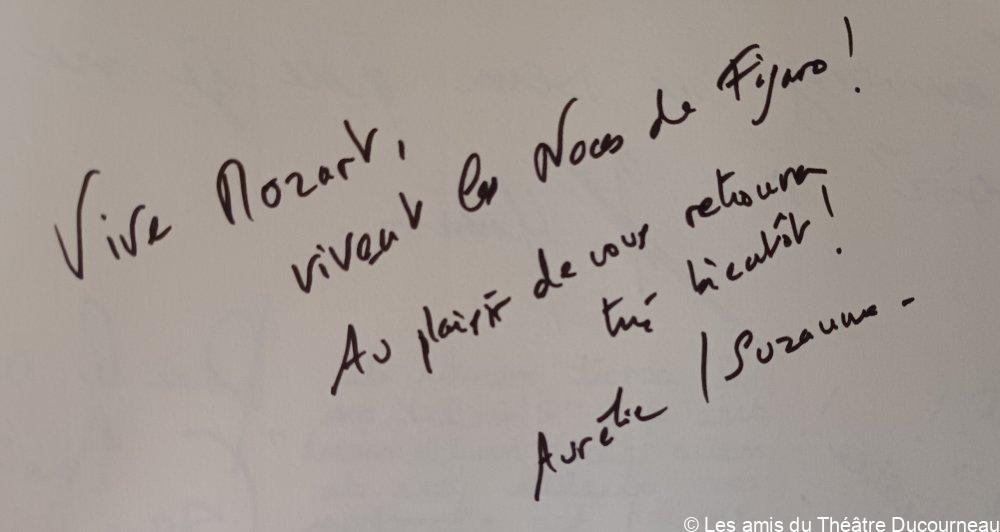 Vive Mozart,
vivent les Noces de Figaro !
Au plaisir de vous retrouver
très bientôt !
Aurélie / Suzanne -
© Les amis du Théâtre Ducourneau